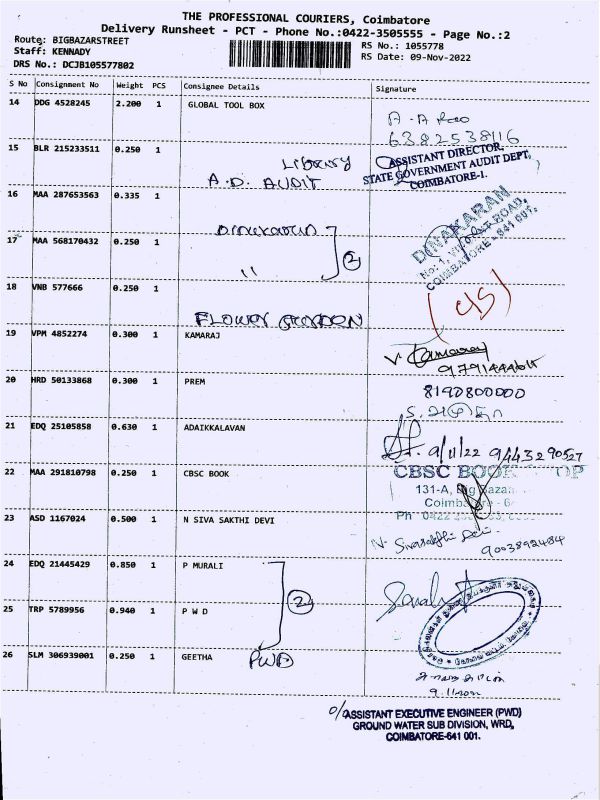 THE PROFESSIONAL COURIERS, Coimbatore
Delivery Runsheet - PCT - Phone No.:0422-3505555 - Page No.:2
Route: BIGBAZARSTREET
Staff: KENNADY
DRS No.: DCJB105577802
RS No.: 1055778
RS Date: 09-Nov-2022
S No Consignment No Weight PCS Consignee Details Signature
14 DDG 4528245 2.200 1 GLOBAL TOOL BOX
6382538116
15 BLR 215233511 0.250 1
Library
A.D. AUDIT
ASSISTANT DIRECTOR,
STATE GOVERNMENT AUDIT DEPT,
COIMBATORE-1.
16 MAA 287653563 0.335 1
DINAKARAN
COIMBATORE - 641 001.
17 MAA 568170432 0.250 1
"
2
18 VNB 577666 0.250 1
(45)
FLOWER GARDEN
19 VPM 4852274 0.300 1 KAMARAJ
V. Kamaraj
20 HRD 50133868 0.300 1 PREM
8190800000
21 EDQ 25105858 0.630 1 ADAIKKALAVAN
9/11/22 9443290527
22 MAA 291810798 0.250 1 CBSC BOOK
CBSC BOOK
131-A, Big Bazaar
23 ASD 1167024 0.500 1 N SIVA SAKTHI DEVI
N. Sivasakthi Devi
9003892484
24 EDQ 21445429 0.850 1 P MURALI
2
25 TRP 5789956 0.940 1 P W D
26 SLM 306939001 0.250 1 GEETHA
PWD
ASSISTANT EXECUTIVE ENGINEER (PWD)
GROUND WATER SUB DIVISION, WRD,
COIMBATORE-641 001.